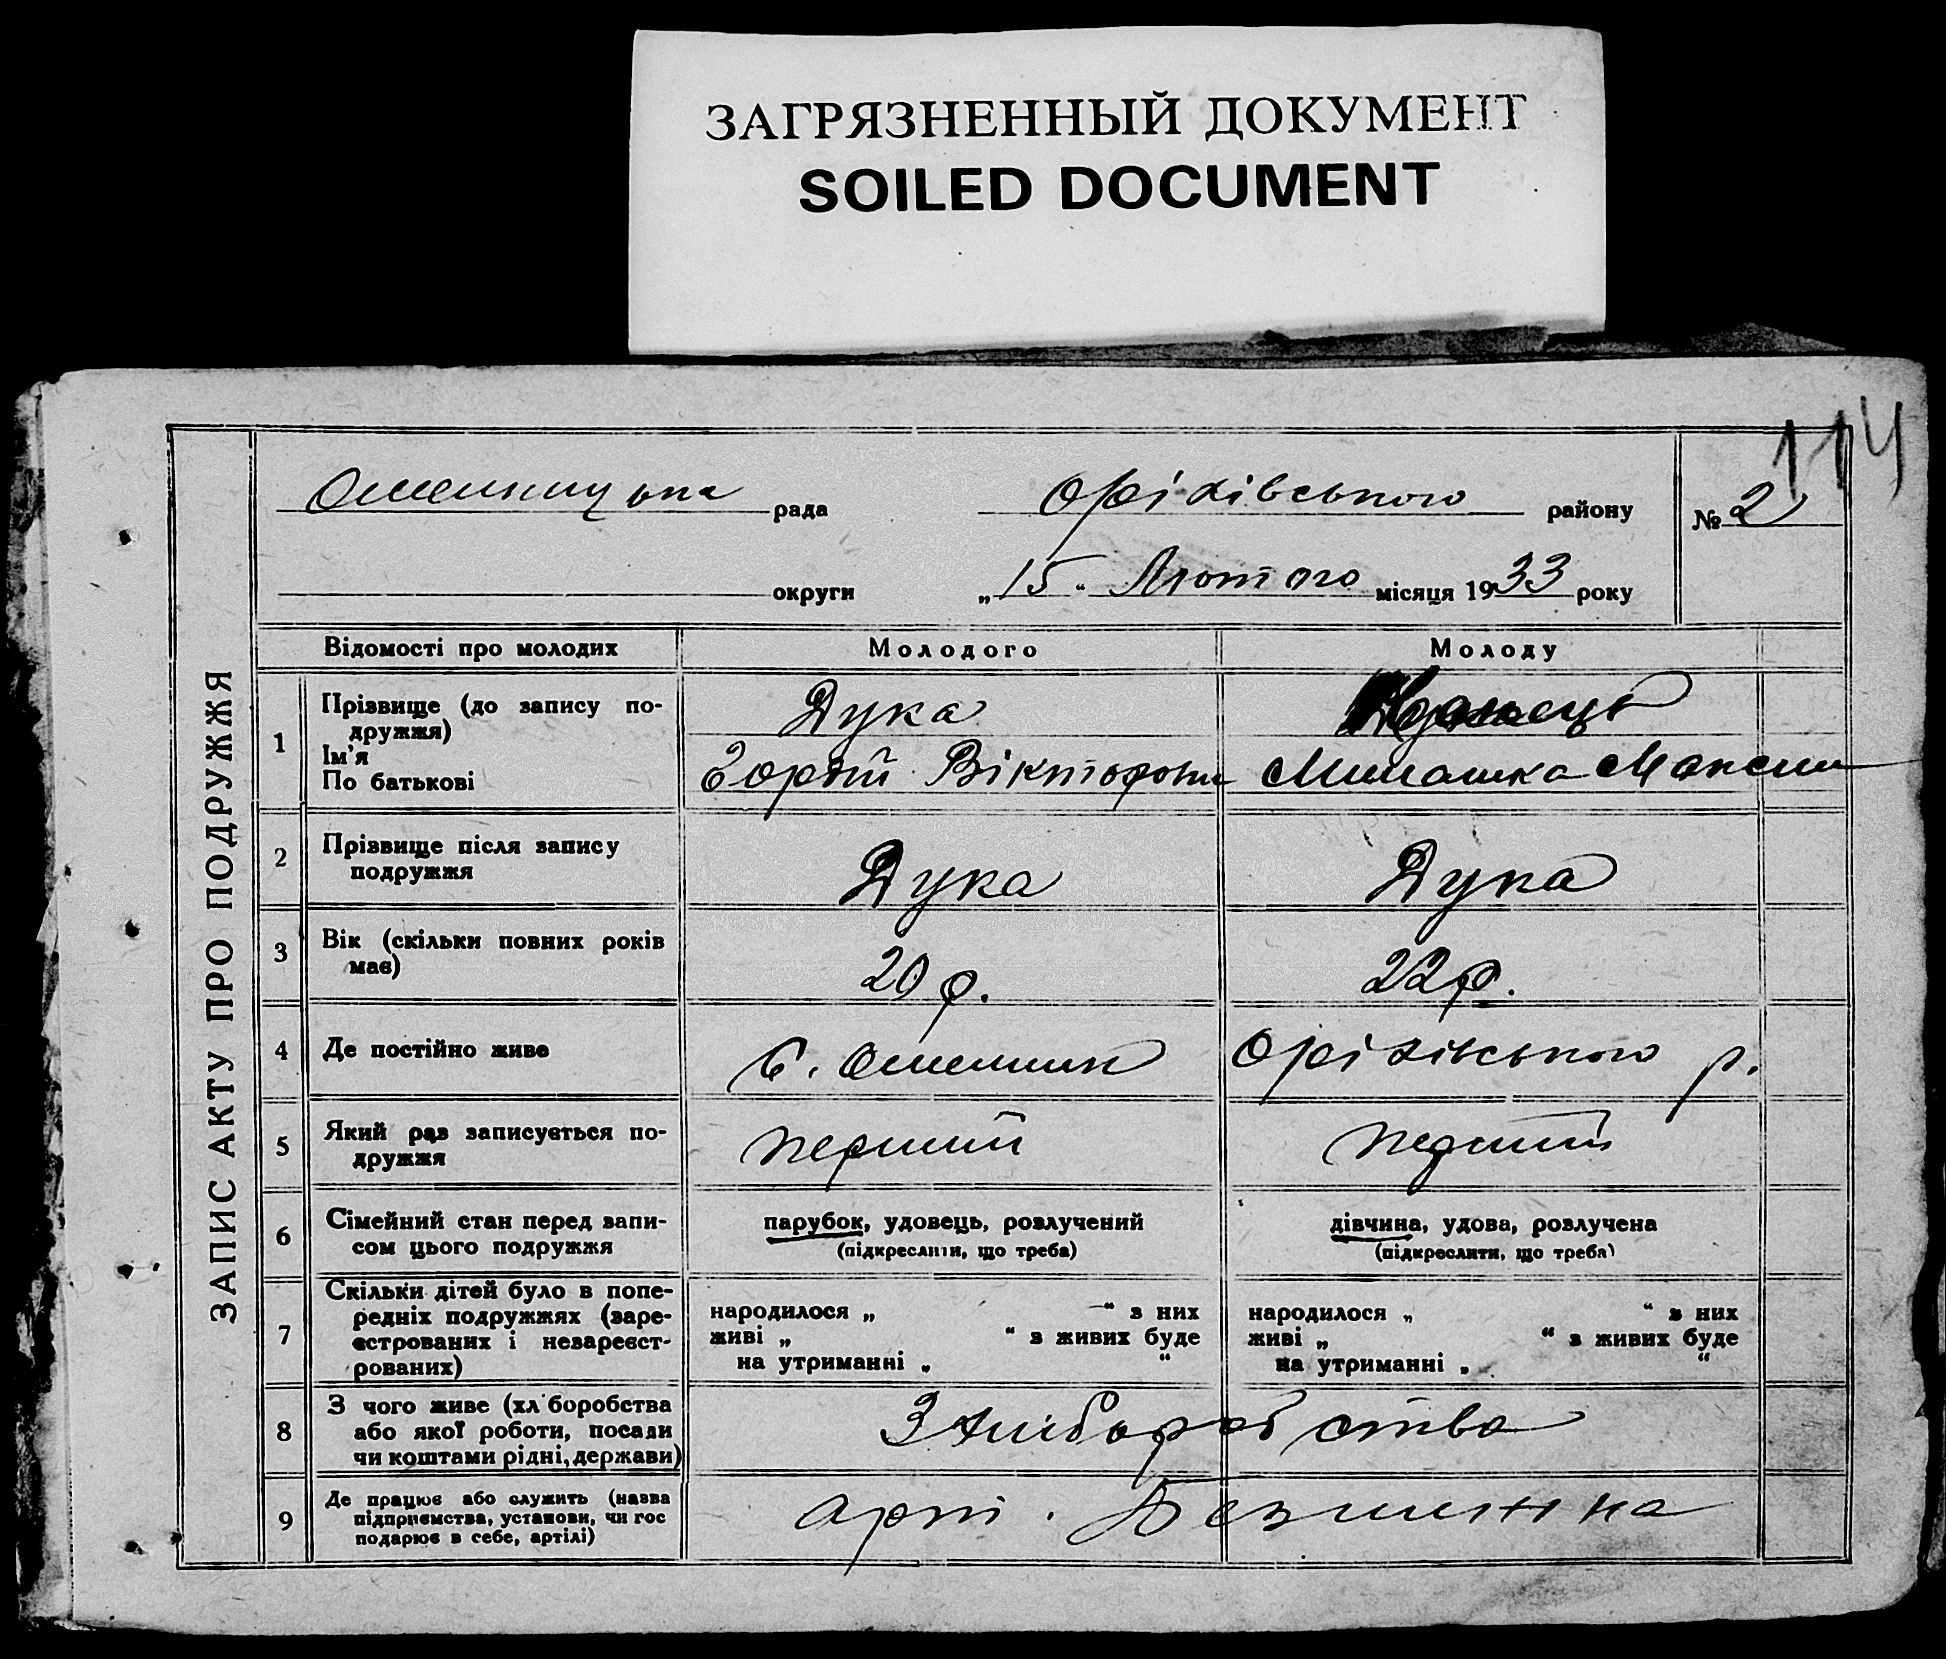 ЗАГРЯЗНЕННЫЙ ДОКУМЕНТ
SOILED DOCUMENT
114
Омельницька рада Оріхівського району № 2
округи „15“ Лютого місяця 1933 року
ЗАПИС АКТУ ПРО ПОДРУЖЖЯ
Відомості про молодих Молодого Молоду
1 Прізвище (до запису по-
дружжя) Дука
Ім'я
По батькові Вікторови Максим
2 Прізвище після запису
подружжя Дука Дука
3 Вік (скільки повних років
має) 20 р. 22 р.
4 Де постійно живе с. Омельник Оріхівського р.
5 Який раз записується по-
дружжя перший перший
6 Сімейний стан перед запи-
сом цього подружжя
парубок, удовець, розлучений дівчина, удова, розлучена
(підкреслити, що треба) (підкреслити, що треба)
7 Скільки дітей було в попе-
редніх подружжях (заре-
єстрованих і незареєст-
рованих)
народилося „ “ з них народилося „ “ з них
живі „ “ з живих буде живі „ “ з живих буде
на утриманні „ “ на утриманні „ “
8 З чого живе (хл боробства
або якої роботи, посади
чи коштами рідні, держави)
З хліборобства
9 Де працює або служить (назва
підприємства, установи, чи гос
подарює в себе, артілі)
арт.